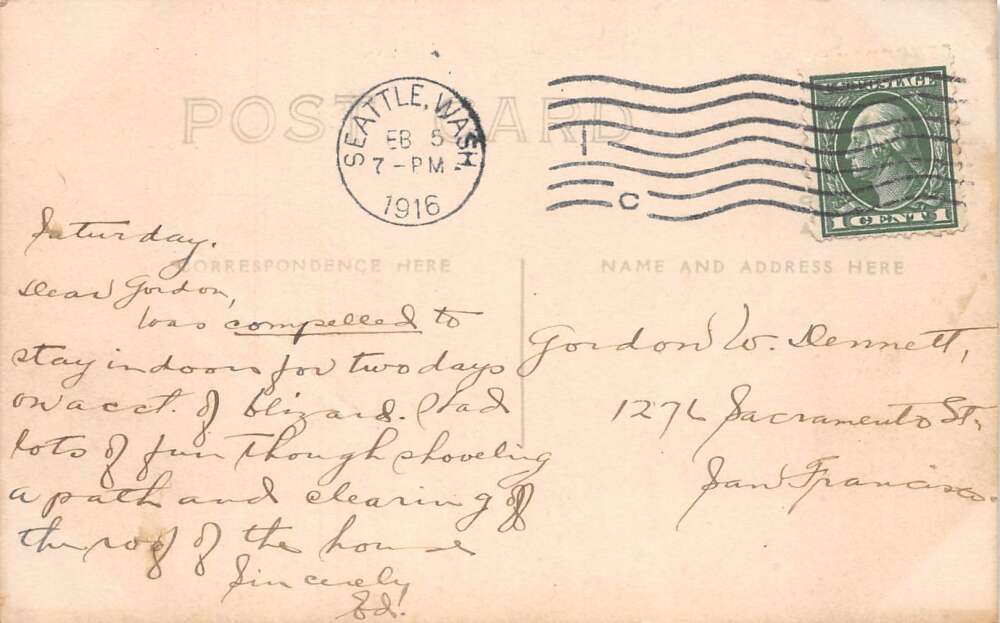 POST CARD
SEATTLE, WASH.
FEB 5
7-PM
1916
C
U.S. POSTAGE
1 CENT 1
CORRESPONDENCE HERE
NAME AND ADDRESS HERE
Saturday.
Dear Gordon,
Was compelled to
stay indoors for two days
on acct. of blizard. Had
lots of fun though shoveling
a path and clearing of
the roof of the house
Sincerely
Ed.
Gordon W. Dennett,
Sacramento St.,
San Francisco.